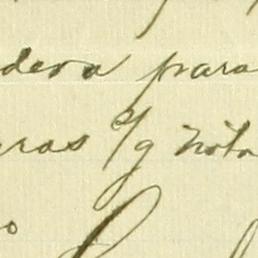 dera para
ras s/g nota
o